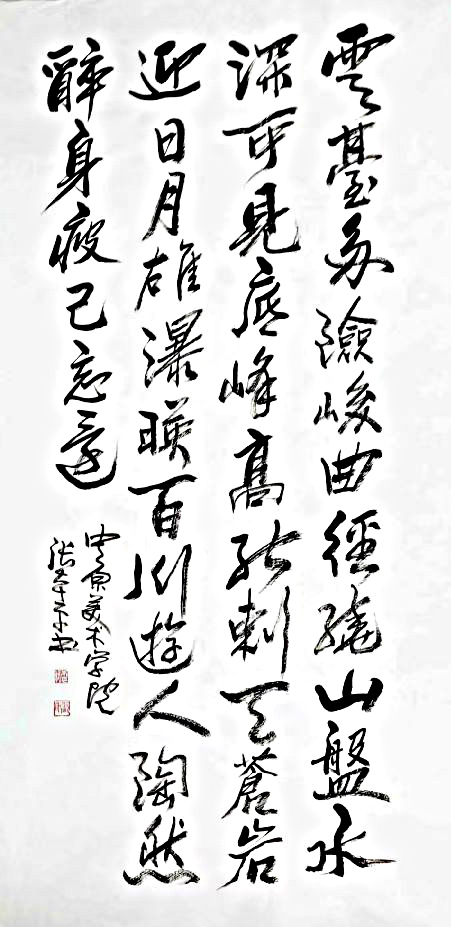 雲臺多險峻曲徑繞山盤水
深可見底峰高能刺天蒼岩
迎日月雄瀑映百川遊人陶然
醉身疲已忘還
中原美术学院